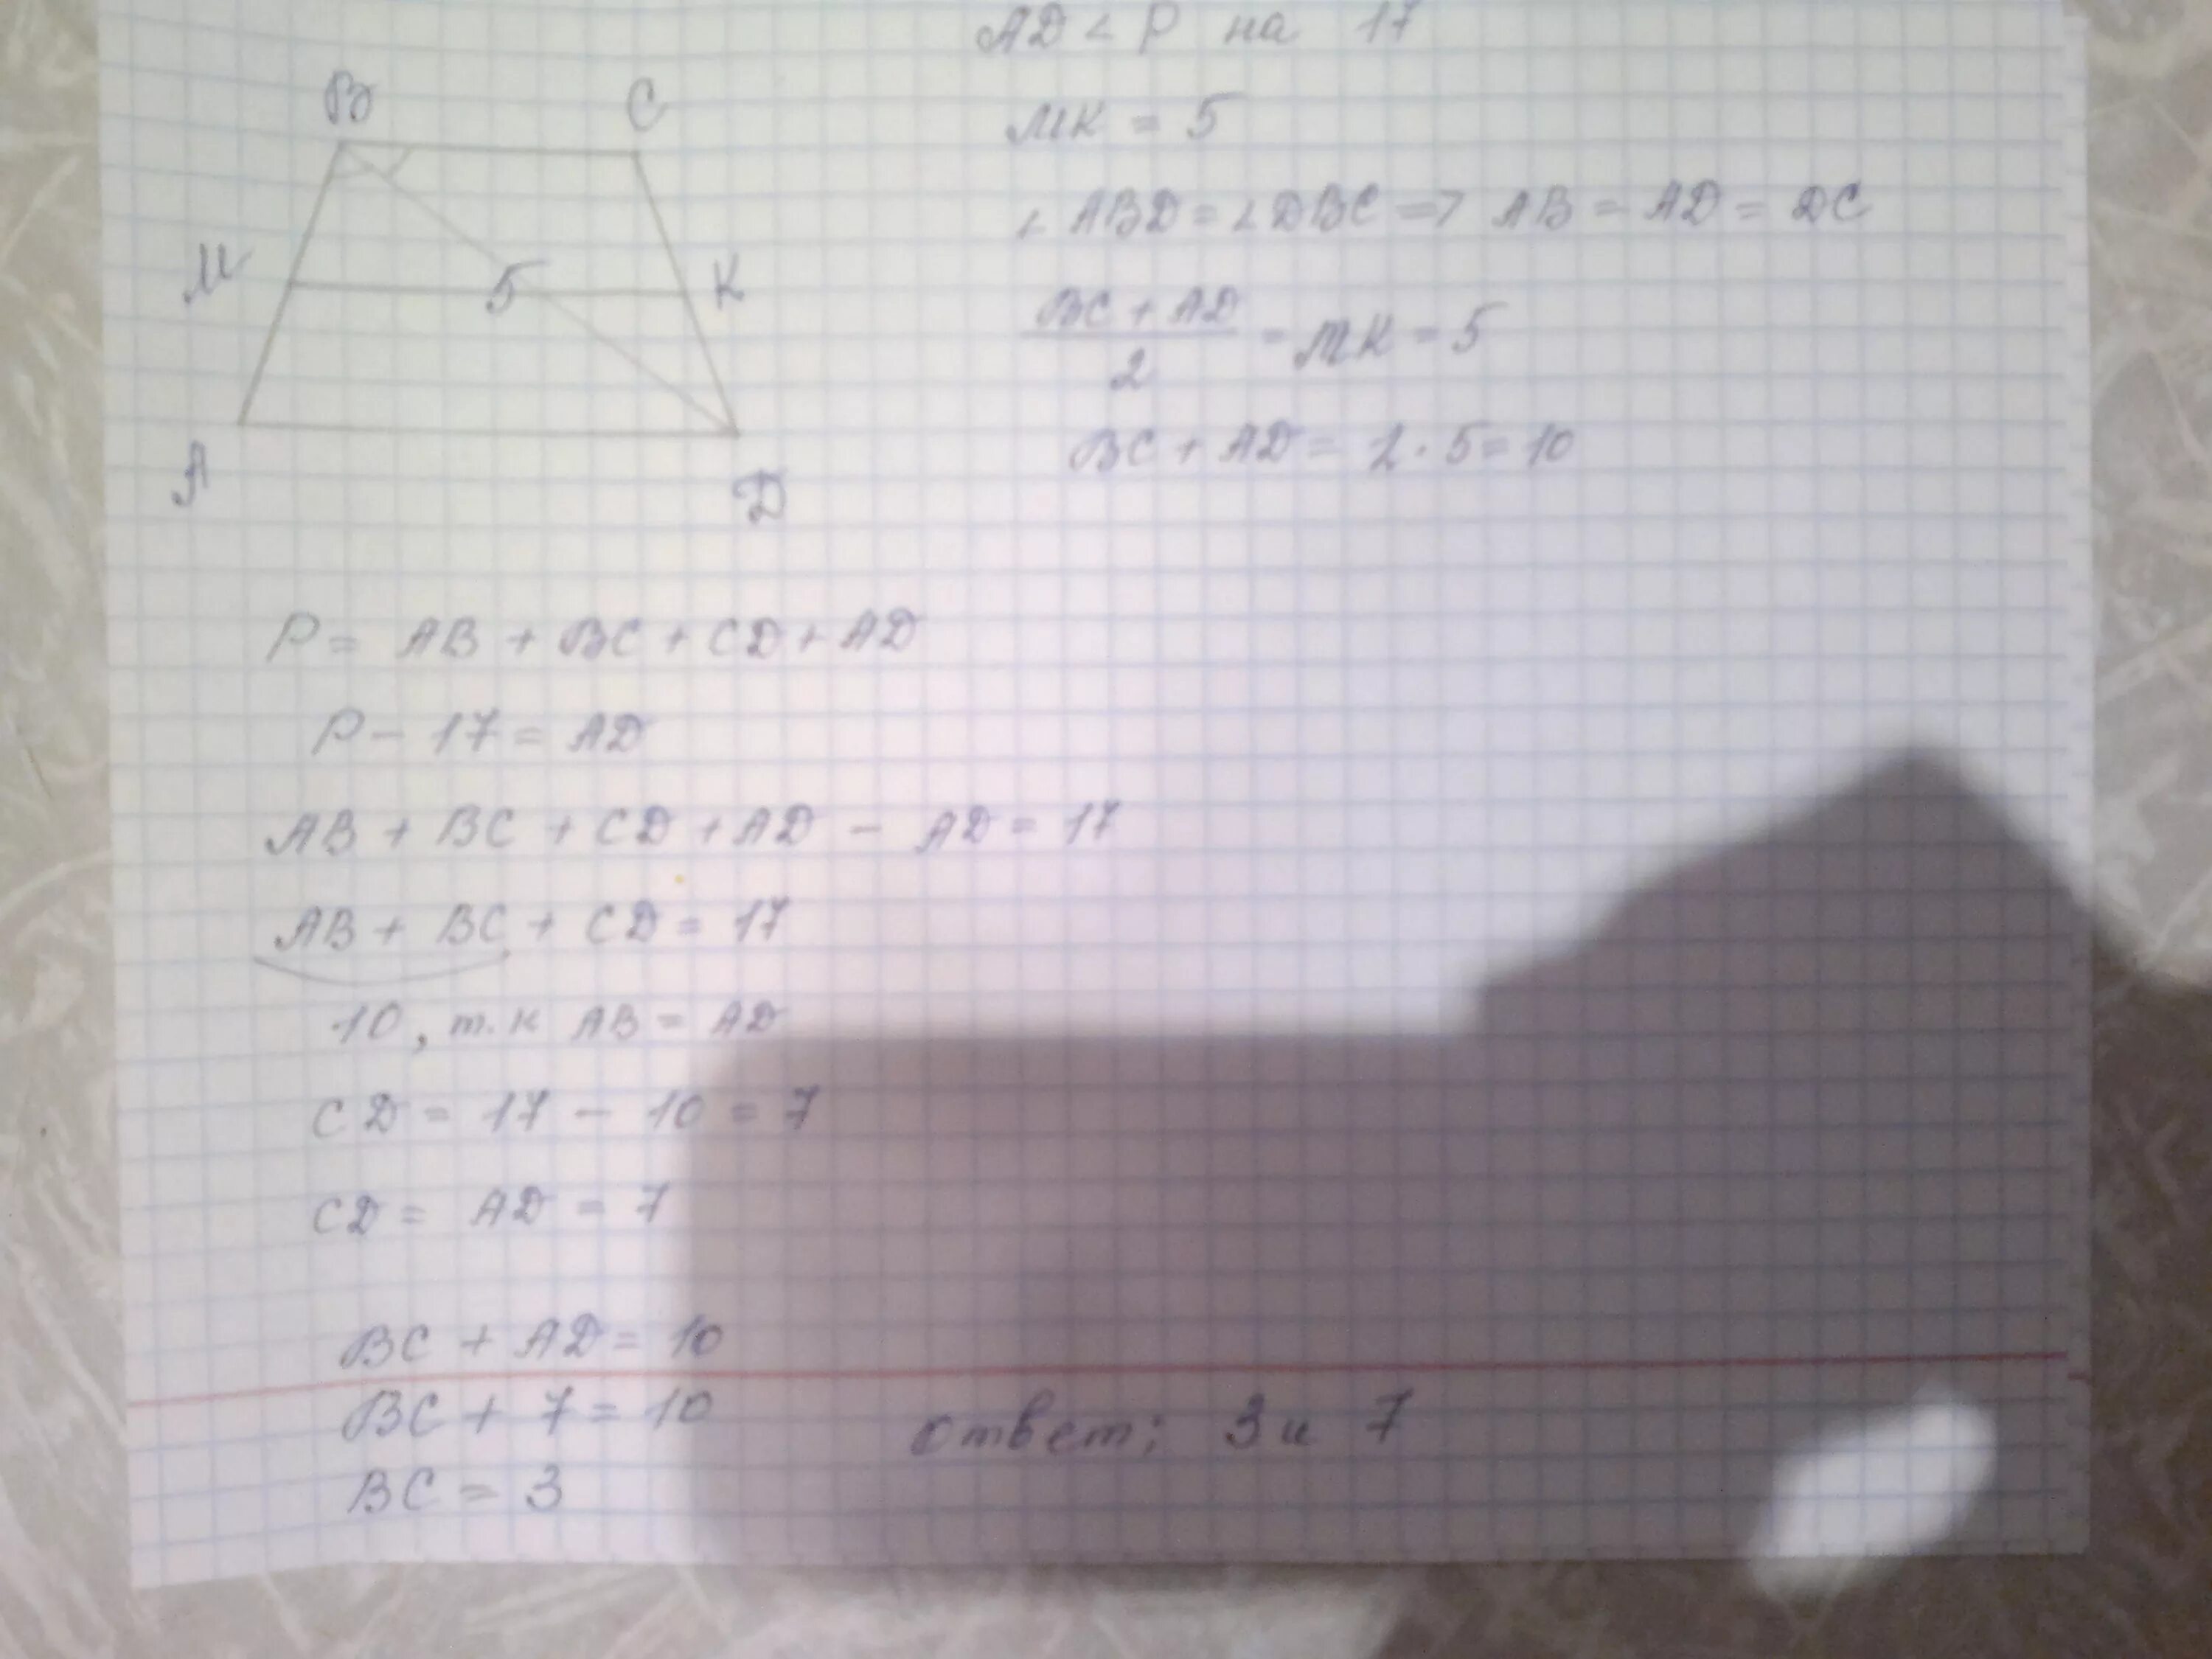 AD < P на 17
B C
MK = 5
∠ ABD = ∠ DBC => AB = AD = DC
M 5 K
BC + AD
2
= MK = 5
BC + AD = 2 · 5 = 10
A D
P = AB + BC + CD + AD
P - 17 = AD
AB + BC + CD + AD - AD = 17
AB + BC + CD = 17
10, т.к AB = AD
CD = 17 - 10 = 7
CD = AD = 7
BC + AD = 10
BC + 7 = 10
ответ: 3 и 7
BC = 3